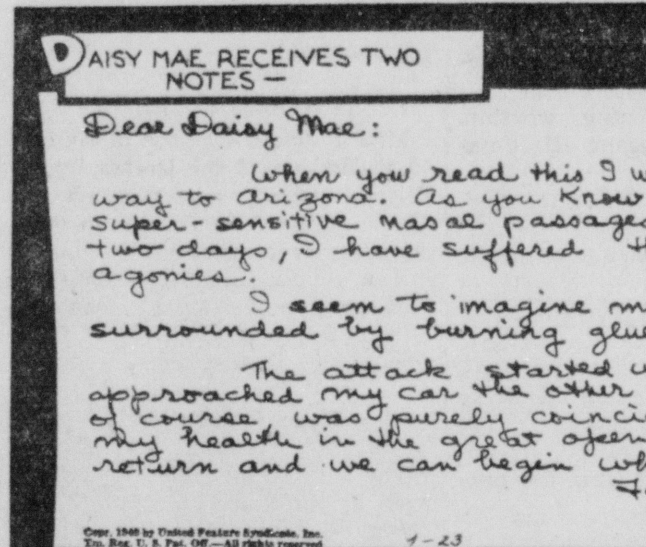 DAISY MAE RECEIVES TWO
NOTES —
Dear Daisy Mae:
When you read this I
way to Arizona. As you know
super-sensitive nasal passages
two days, I have suffered
agonies.
I seem to imagine
surrounded by burning glue
The attack started
approached my car the other
of course was purely
my health in the great open
return and we can begin
Copr. 1940 by United Feature Syndicate, Inc.
Tm. Reg. U. S. Pat. Off.—All rights reserved
1-23